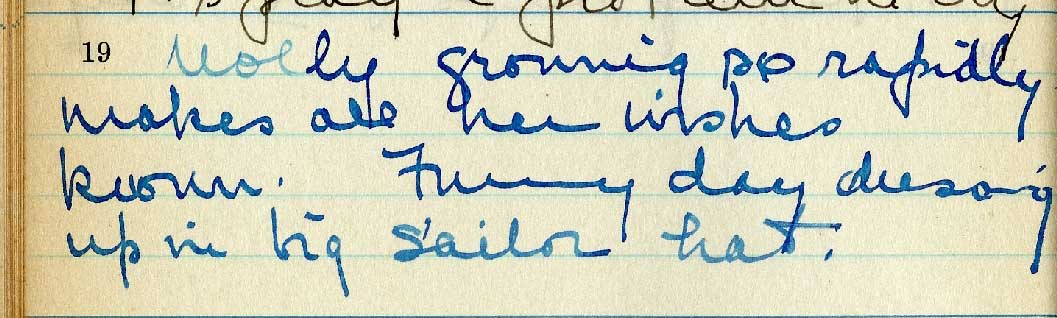 19 Molly growing so rapidly
makes all her wishes
known. Funny day dressing
up in big sailor hat.